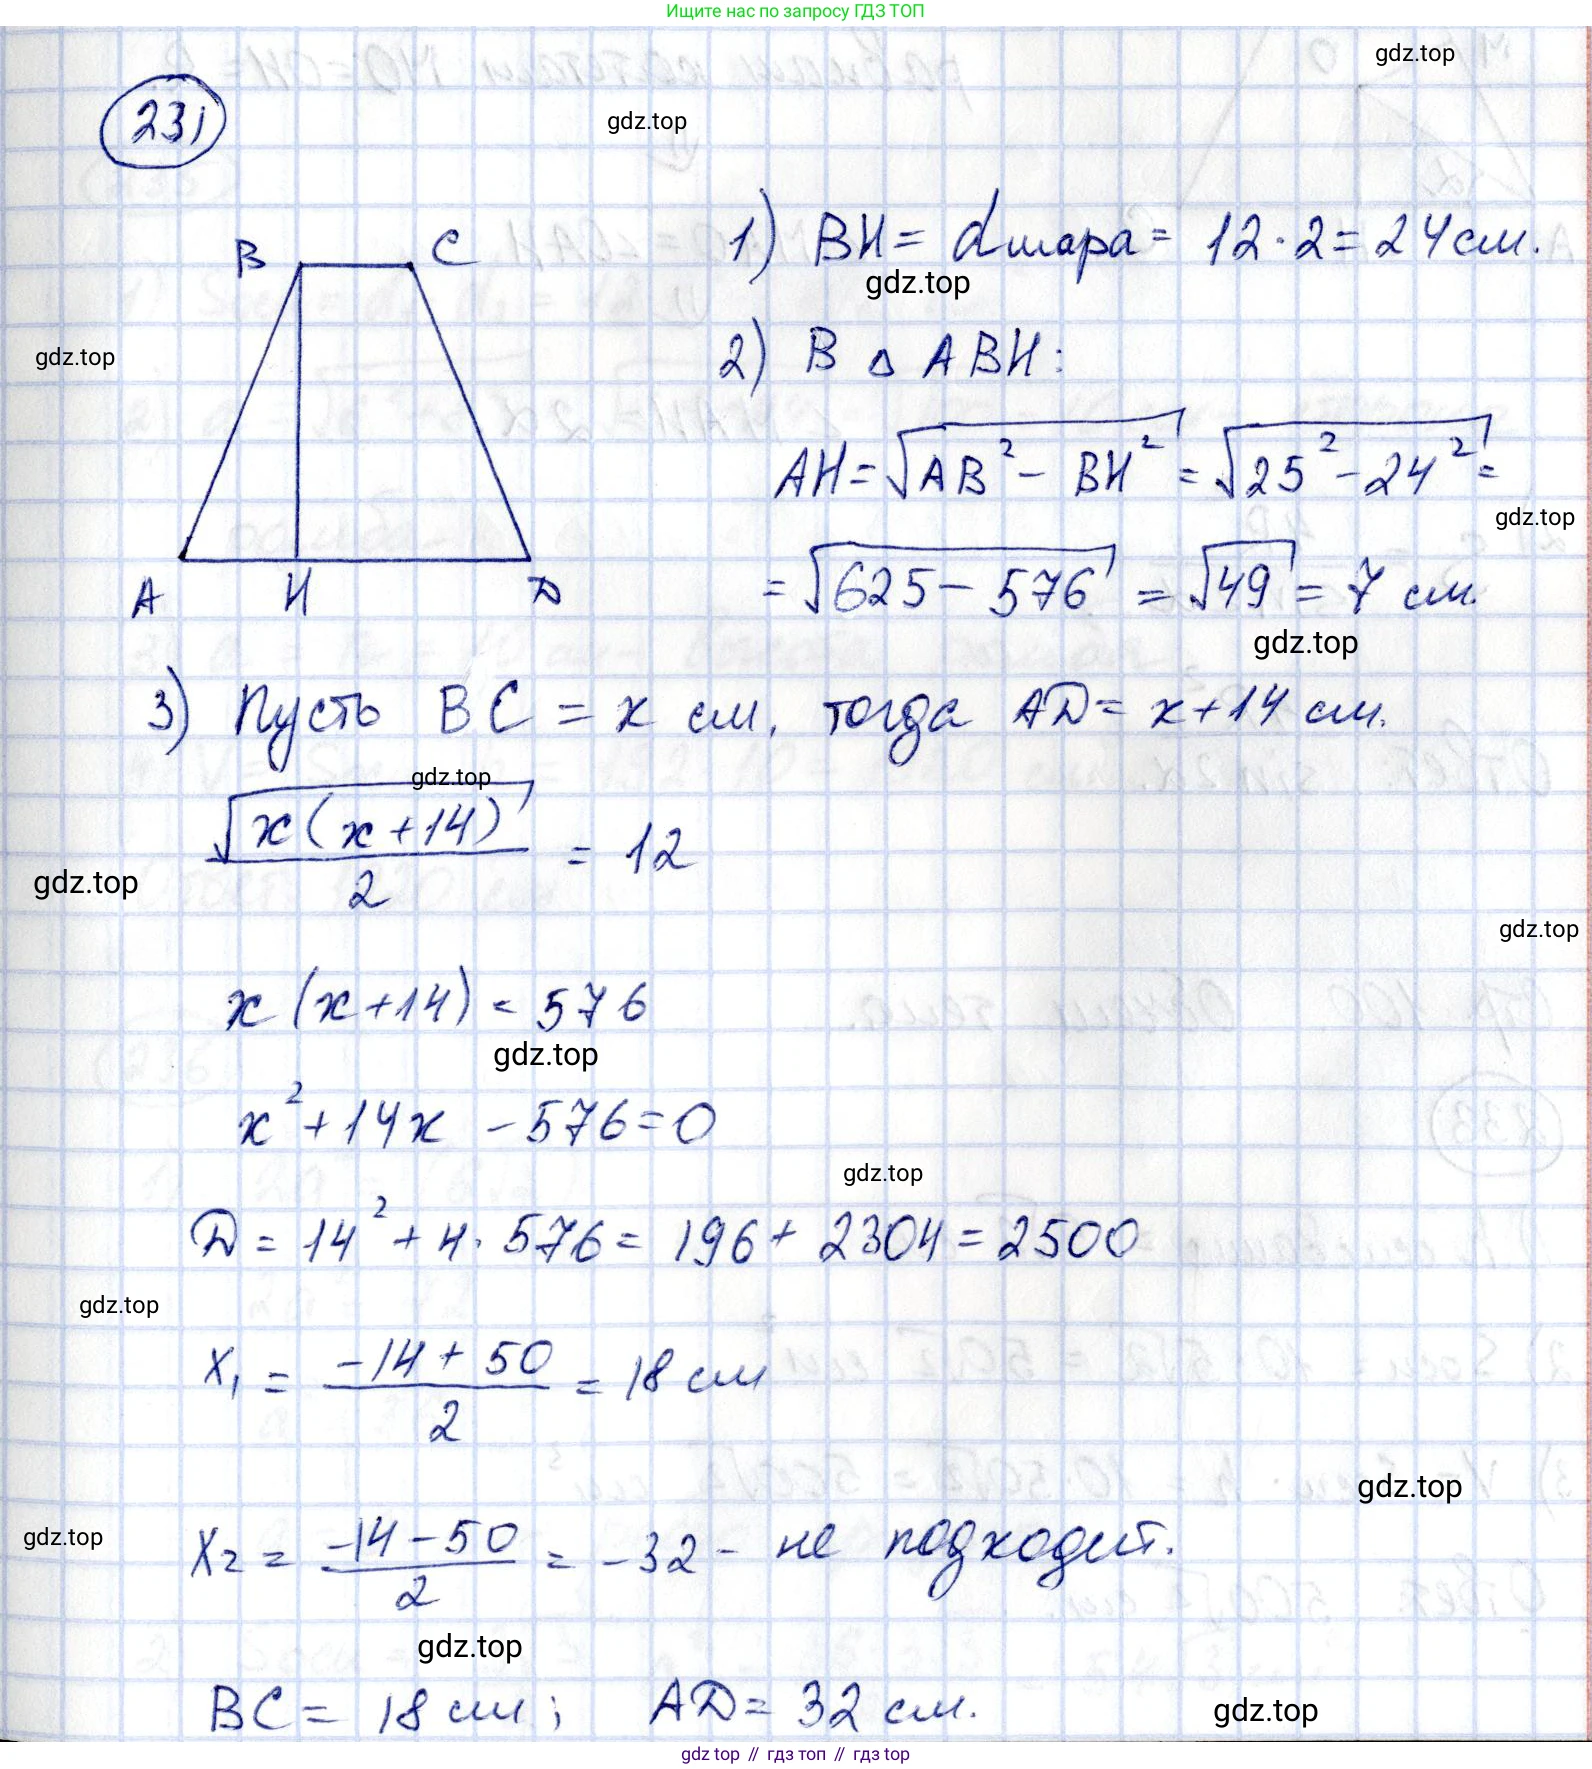 Ищите нас по запросу ГДЗ ТОП
gdz.top
231
gdz.top
1) BH = dшара = 12 · 2 = 24 см.
gdz.top
B C
2) В △ ABH:
gdz.top
AH = √(AB² - BH²) = √(25² - 24²) =
gdz.top
= √(625 - 576) = √49 = 7 см.
A H D
gdz.top
3) Пусть BC = x см, тогда AD = x + 14 см.
gdz.top
√(x(x + 14)) / 2 = 12
gdz.top
gdz.top
x (x + 14) = 576
gdz.top
x² + 14x - 576 = 0
gdz.top
D = 14² + 4 · 576 = 196 + 2304 = 2500
gdz.top
x₁ = (-14 + 50) / 2 = 18 см
gdz.top
x₂ = (-14 - 50) / 2 = -32 - не подходит.
gdz.top
gdz.top
BC = 18 см; AD = 32 см.
gdz.top
gdz top // гдз топ // gdz top